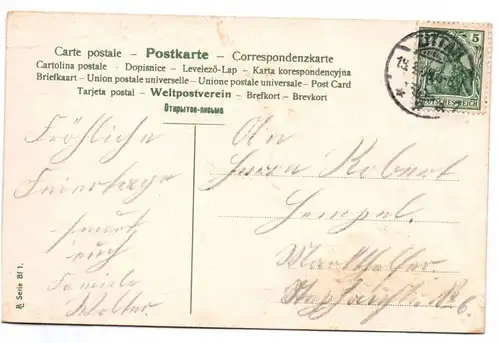 Carte postale – Postkarte – Correspondenzkarte
Cartolina postale - Dopisnice - Levelező-Lap - Karta korespondencyjna
Briefkaart - Union postale universelle - Unione postale universale - Post Card
Tarjeta postal - Weltpostverein - Brefkort - Brevkort
Открытое-письмо
5
DEUTSCHES REICH
Fröhliche
Feiertage
wünscht
euch
Familie
Walter
An
Herrn Robert
Hempel.
Markthelfer
6.
Serie Bf 1.